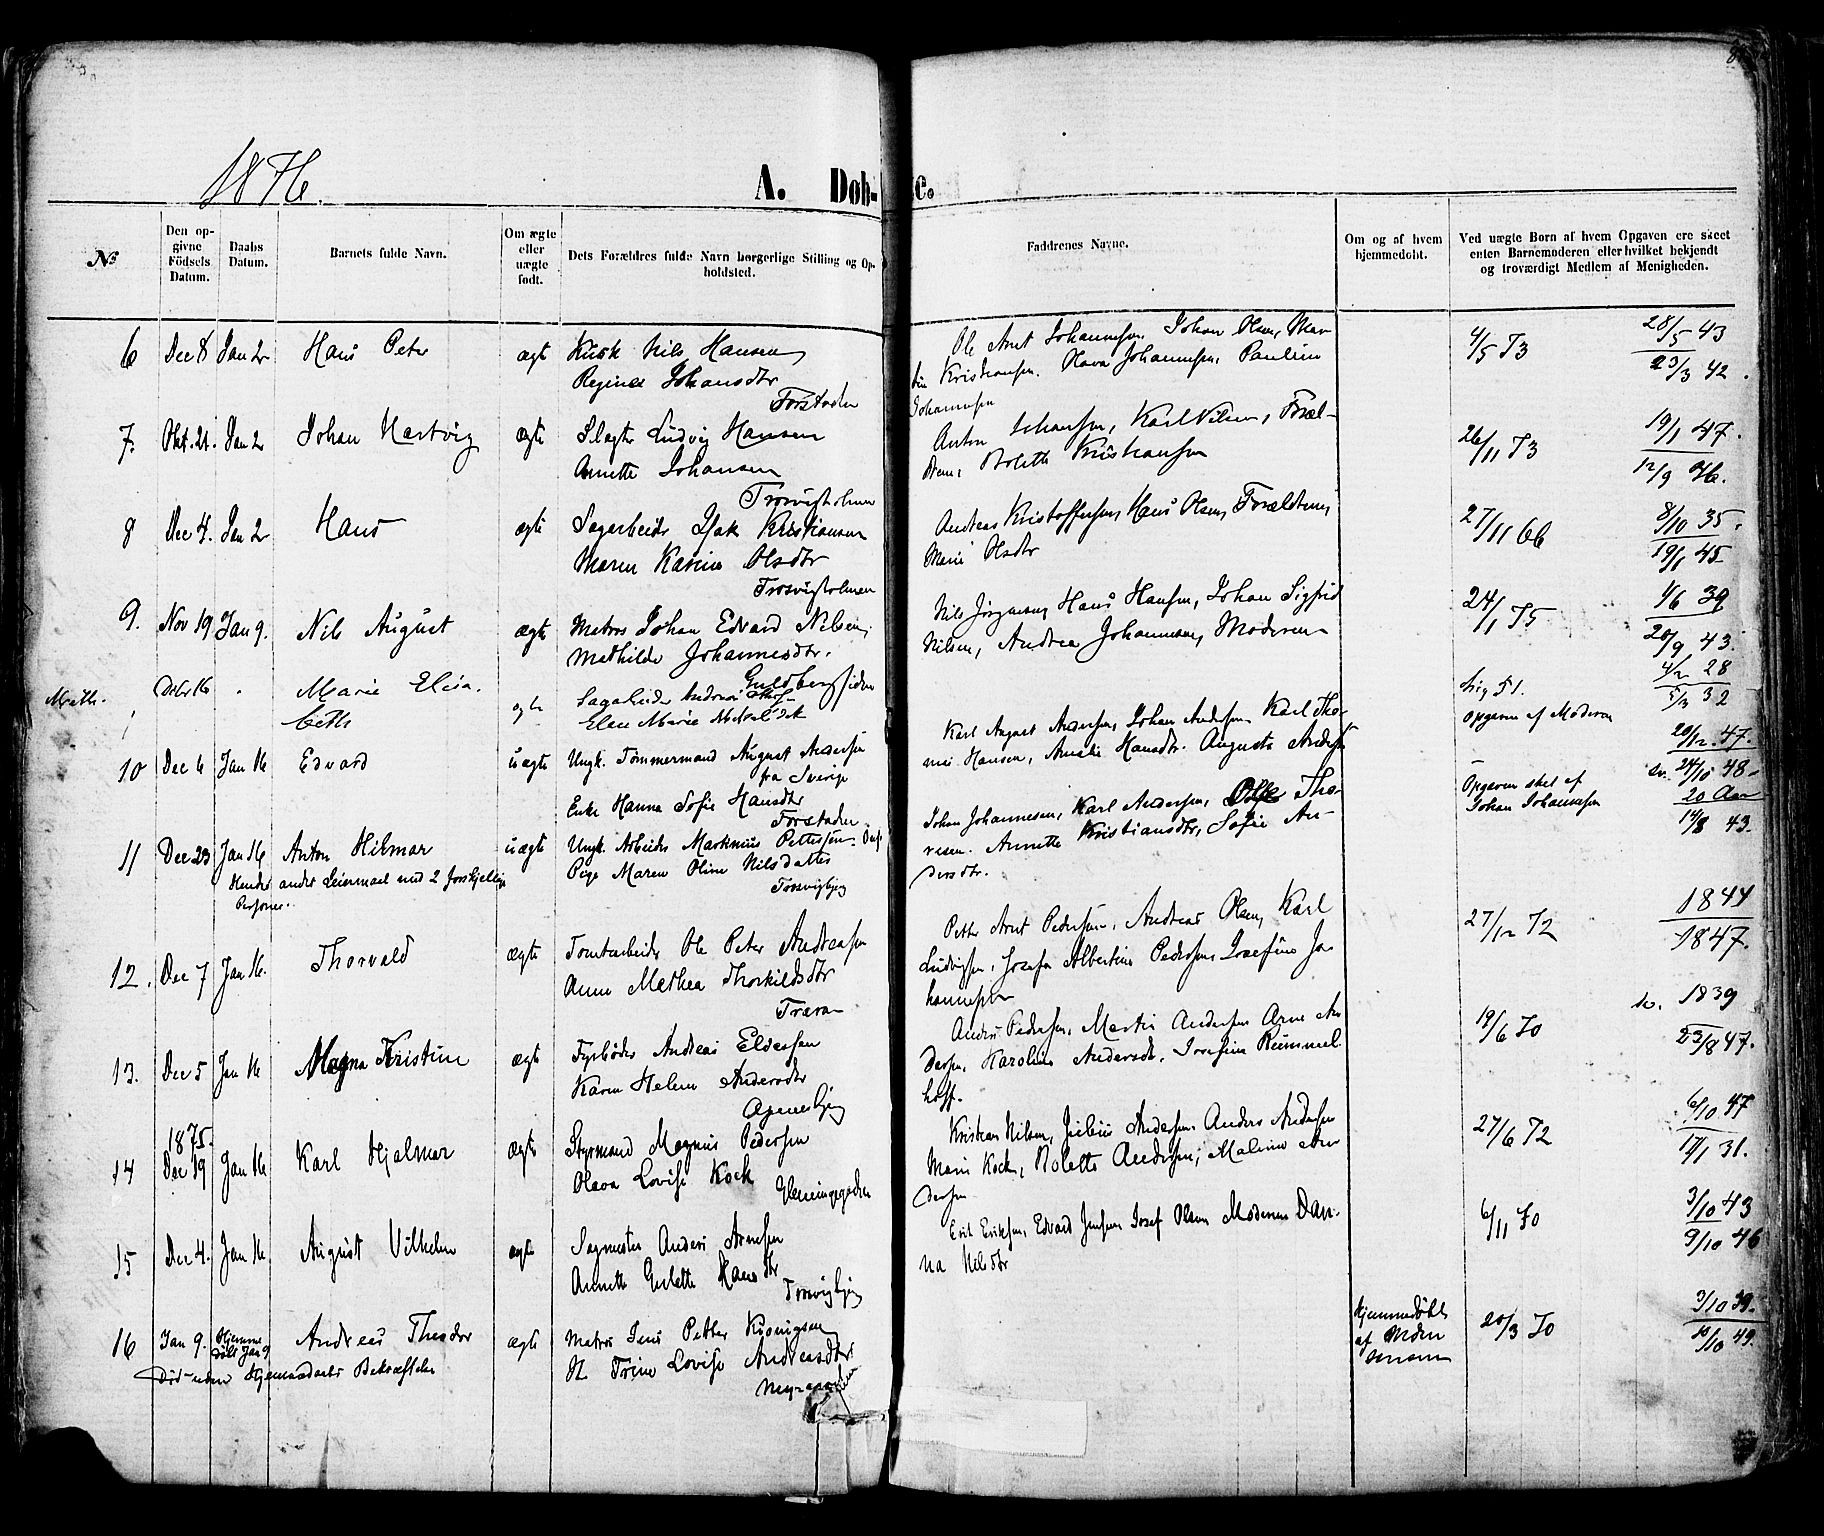 1876.
A. Døb-
te.
No
Den op-
givne
Födsels
Datum.
Daabs
Datum.
Barnets fulde Navn.
Om ægte
eller
uægte
født.
Dets Forældres fulde Navn borgerlige Stilling og Op-
holdsted.
Faddrenes Navne.
Om og af hvem
hjemmedøbt.
Ved uægte Børn af hvem Opgaven ere skeet
enten Barnemoderen eller hvilket bekjendt
og troværdigt Medlem af Menigheden.
6 Dec 8 Jan 2 Hans Peter ægte Kusk Nils Hansen
Regine Johansdtr
Forstaden
Ole Arnt Johannesen. Johan Olsen, Mar
tin Kristiansen. Olava Johannesen, Pauline
Johannesen
4/5 73
28/5 43
23/3 42.
7. Okt. 21. Jan 2 Johan Hartvig ægte Slagter Ludvig Hansen
Annette Johansen
Trosvigholmen
Anton Johansen, Karl Nilsen, Foræl-
drene, Bolette Kristiansen
26/11 73
19/1 47.
12/9 46.
8 Dec 4. Jan 2 Hans ægte Sagarbeider Isak Kristiansen
Maren Karine Olsdtr
Trosvigholmen
Andreas Kristoffersen, Hans Olsen, Forældrene,
Marie Olsdtr
27/11 66
8/10 35.
19/1 45
9. Nov 19 Jan 9. Nils August ægte Matros Johan Edvard Nilsen,
Mathilde Johannesdtr.
Guldbergsiden
Nils Jørgensen, Hans Hansen, Johan Sigfrid
Nilsen, Andrea Johannesen, Moderen
24/1 75
1/6 39
20/9 43.
Marie Elisa
beth
ægte
Elen Marie
51.
Opgaven af Moderen
4/2 28
5/3 32
10 Dec 6 Jan 16 Edvard uægte Ungk. Tømmermand August Andersen
fra Sverige
Enke Hanna Sofie Hansdtr
Forstaden
Karl August Andersen, Johan Andersen Karl Tho-
mas Hansen, Amalie Hansdtr. Augusta Anders
20/12 47.
24/10 48
11 Dec 23 Jan 16 Anton Hilmar uægte Ungk. Arbeider Martinius Pettersen
Pige Maren Oline Nilsdatter
Trosvigbjerg
Hendes andet Leiermaal med 2 forskjellige
Personer.
Johan Johannesen, Karl Andersen, Tho-
resen. Annette Kristiansdtr, Sofie An-
dersdtr.
Opgaven skeet af
Johan Johannesen
20 Aar
14/8 43.
12. Dec 7 Jan 16. Thorvald ægte Tomtearbeider Ole Peter Andreasen
Anne Mathea Thorkildsdtr
Traran
Petter Arnt Pedersen, Andreas Olsen, Karl
Ludvigsen, Josefa Albertine Pedersen, Josefine Jo
hannesen
27/12 72
1844
1847.
13. Dec 5 Jan 16 Magna Kristine ægte Fyrbøder Andreas Eldersen
Karen Helene Andersdtr
Agnesbjerg
Anders Pedersen, Martin Andersen Arne An
dersen, Karoline Andersdt. Josefine Rummel
hoff.
19/6 70
1839
23/8 47.
14 1875. Dec 19 Jan 16 Karl Hjalmar ægte Styrmand Magnus Pedersen
Olava Lovise Kock
Glemmegaden
Kristian Nilsen, Julius Andersen. Anders Andersen
Marie Kock, Bolette Andersen, Maline An
dersen
27/6 72
6/10 47
17/1 31.
15 Dec 4. Jan 16 August Vilhelm ægte Sagmester Anders Arnesen
Annette Gulette Hansdtr
Trosvigbjerg
Erik Eriksen, Edvard Jensen Josef Olsen Moderen Dan-
na Nilsdtr
6/11 70
3/10 43
9/10 46
16 Jan 9. Hjemme
døbt Jan 9 Andreas Theodor ægte Matros Jens Petter Kionigsen
H. Trine Lovise Andreasdtr
Død uden Hjemmedaabs Bekræftelse
Hjemmedøbt
af
20/3 70
3/10 39.
10/10 49.